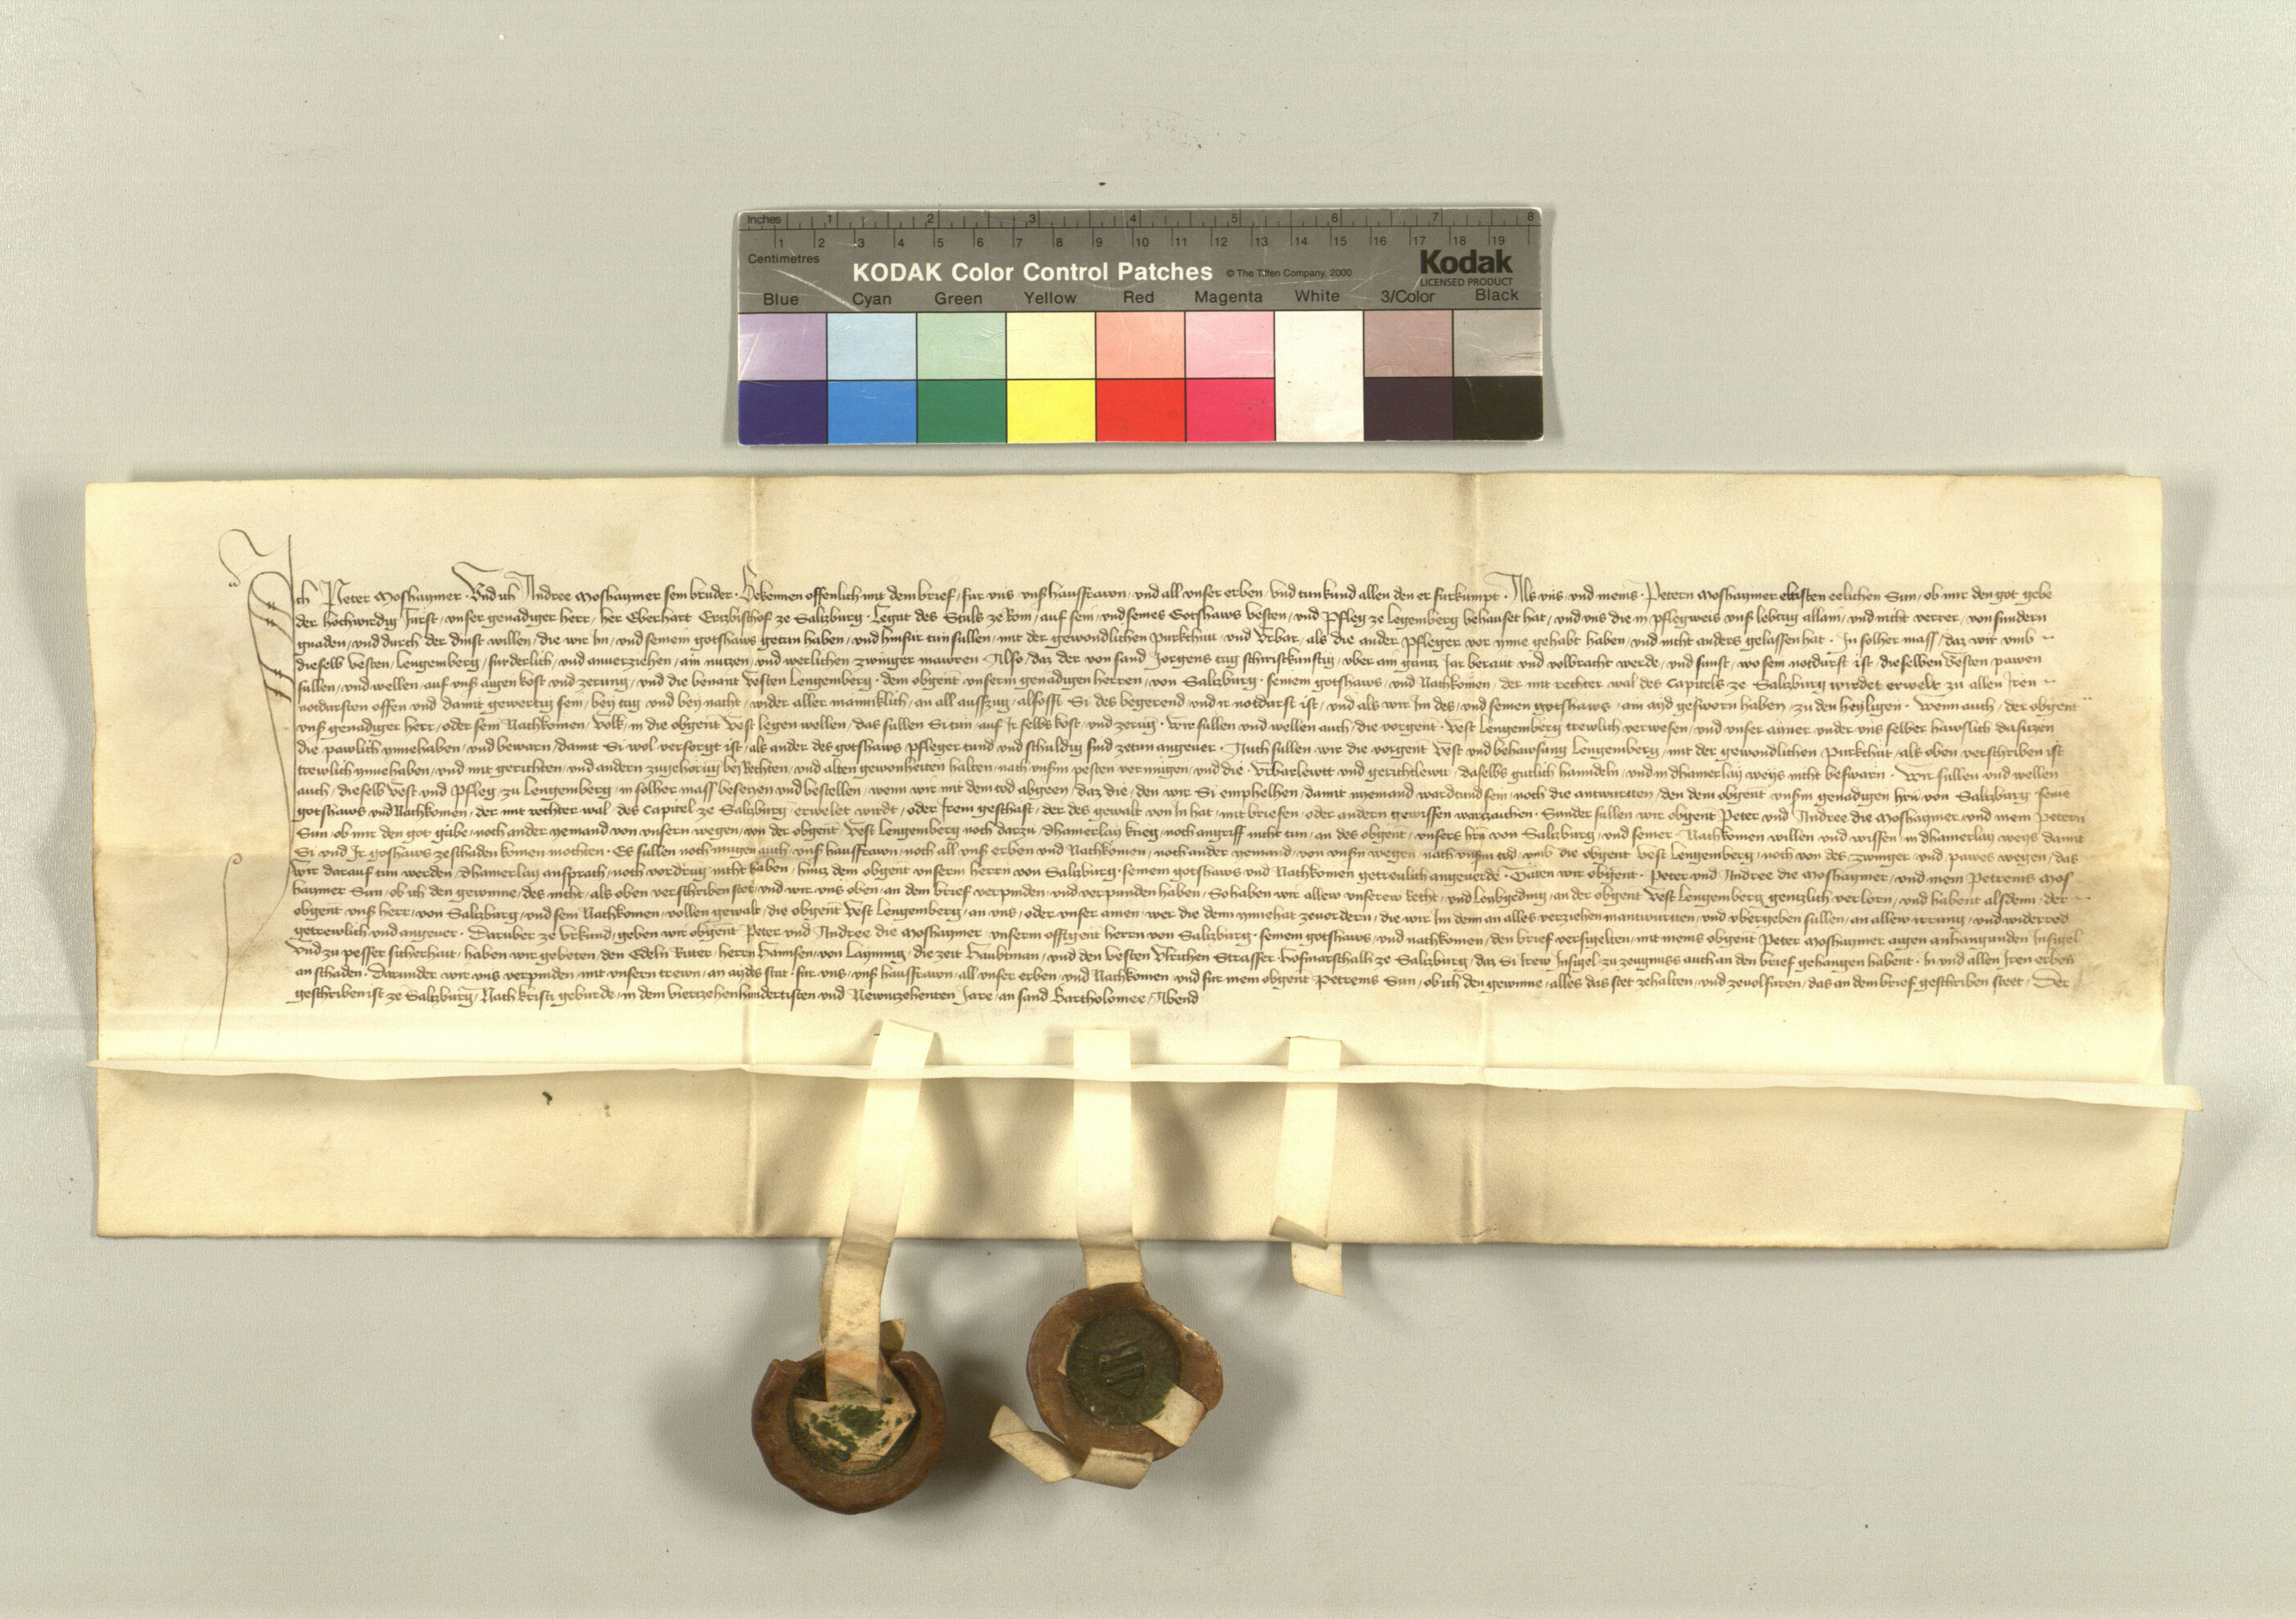 Inches 1 2 3 4 5 6 7 8
1 2 3 4 5 6 7 8 9 10 11 12 13 14 15 16 17 18 19
Centimetres
KODAK Color Control Patches © The Tiffen Company, 2000 Kodak
LICENSED PRODUCT
Blue Cyan Green Yellow Red Magenta White 3/Color Black
Ich Peter Moshaymer · Vnd ich Andree Moshaymer sein bruder · Bekennen offenlich mit dem brief / fur vns vnsß hausfrawn / vnd all vnser erben / vnd tun kund allen den er furkumpt · Als vns / vnd meins · Petern Moshaymer eltisten eelichen Sun / ob mir den got gebe
der hochwirdig Furst / vnser genadiger herr / her Eberhart Ertzbischof ze Salzburg · Legat des Stuls ze Rom / auf sein / vnd seines Gotshaws vesten / vnd Pfleg ze Lengemberg behauset hat / vnd vns die in pflegweis vnsß lebtag allain / vnd nicht verrer / von sundern
gnaden / vnd durch der dinst willen / die wir Im / vnd seinem gotshaws getan haben / vnd hinfur tun sullen / mit der gewondlichen purkchut / vnd Vrbar / als die ander Pfleger vor ynne gehabt haben / vnd nicht anders gelassen hat · In solher mass / daz wir vmb
dieselb vesten / Lengemberg / furderlich / vnd anuerziehen / ain nutzen / vnd werlichen zwinger mawren · Also / daz der von sand Jorgens tag schiristkunftig / vber ain gantz Jar berait vnd volbracht werde / vnd sunst / wo sein notdurft ist / dieselben Vesten pawen
sullen / vnd wellen / auf vnsß aigen kost vnd zerung / vnd die benant Vesten Lengemberg · dem obgent vnserm genadigen herren / von Salzburg · seinem gotshaws / vnd Nachkomen / der mit rechter wal des Capitels ze Salzburg wirdet erwelt zu allen Iren
notdurften offen vnd damit gewertig sein / bey tag vnd bey nacht / wider aller mannklich / an all auszug / alsofft Si des begerend vnd ir notdurft ist / vnd als wir Im des / vnd seinen gotshaws / ain ayd gesworn haben / zu den heyligen · Wenn auch / der obgent
vnsß genadiger herr / oder sein Nachkomen / Volk / in die obgent Vest legen wellen / das sullen Si tun / auf Ir selbs kost / vnd zerung · Wir sullen vnd wellen auch / die vorgent · Vest Lengemberg trewlich verwesen / vnd vnser ainer vnder vns selber hawslich dasitzen
die pawlich ynnehaben / vnd bewarn / damit Si wol versorgt ist / als ander des gotshaws pfleger tund vnd schuldig sind zetun angeuer · Auch sullen wir die vorgent Vest vnd behawsung Lengemberg / mit der gewondlichen Purkchut / als oben verschriben ist
trewlich ynnehaben / vnd mit gerichten / vnd andern zugehorung bey Rechten / vnd alten gewonheiten halten / nach vnsm pesten vermugen / vnd die · Vrbarlewtt vnd gerichtlewtt · daselbs gutlich hanndeln / vnd in dhainerlay weys nicht beswarn · Wir sullen vnd wellen
auch / dieselb Vest vnd Pfleg zu Lengemberg / in solher mass besetzen vnd bestellen / wenn wir mit dem tod abgeen / daz die / den wir Si emphelhen / damit nyemand wardtund sein / noch die antwurtten / den dem obgent · vnsm genadigen hrn von Salzburg · seim
gotshaws vnd Nachkomen / der mit rechter wal des Capitel ze Salzburg erwelet wirdt / oder Irem geschaft / der des gewalt von In hat / mit briefen / oder andern gewissen wartzaichen · Sunder sullen wir obgent Peter vnd Andree die Moshaymer / vnd mein Petern
Sun · ob mir den got gabe / noch ander yemand von vnsern wegen / von der obgent Vest Lengemberg noch darzu / dhainerlay krieg / noch angriff nicht tun / an des obgent / vnsers hrn von Salzburg / vnd seiner · Nachkomen willen vnd wissen / in dhainerlay weys damit
Si vnd Ir goshaws zeschaden komen mochten · Es sullen noch mugen auch vnsß hausfrawn / noch all vnsß erben vnd Nachkomen / noch ander yemand / von vnsm wegen / nach vnsm tod / vmb die obgent Vest Lengemberg / noch von des zwinger / vnd pawes wegen / das
wir darauf tun werden / dhainerlay ansprach / noch vordrug nicht haben / hintz dem obgent vnserm herrn von Salzburg · seinem gotshaws vnd Nachkomen getreulich angeuerde · Taten wir obgent · Peter vnd Andree die Moshaymer / vnd mein Petreins Mos
haymer Sun / ob ich den gewinne / des nicht / als oben verschriben stet / vnd wir vns oben / an dem brief verpinden / vnd verpunden haben / So haben wir allew vnserew Recht / vnd Leibgeding / an der obgent Vest Lengemberg gentzlich verlorn / vnd habent alsdenn / der
obgent vnsß herr / von Salzburg / vnd sein Nachkomen / vollen gewalt / die obgent Vest Lengemberg / an vns / oder vnser ainen / wer die denn ynnehat zeuordern / die wir Im denn an alles verziehen inantwurtten / vnd vbergeben sullen / an allew irrung / vnd widerred
getrewlich vnd angeuer · Daruber ze vrkund / geben wir obgent Peter vnd Andree die Moshaymer / vnserm offtgent herrn von Salzburg · seinem gotshaws / vnd nachkomen / den brief versigelten / mit meins obgent Peter Moshaymer aigen anhangunden Insigel
Vnd zu pesser sicherhait / haben wir gebeten / den Edeln Ritter / herrn Hannsen / von Layming / die zeit Haubtman / vnd den vesten Vlrichen Strasser · hofmarschalh ze Salzburg / daz Si Irew Insigel / zu zeugnuss auch an den brief gehangen habent · In vnd allen Iren erben
an schaden · Darunder wir vns verpinden / mit vnsern trewn / an aydes stat · fur vns / vnsß hausfrawn / all vnser erben / vnd Nachkomen vnd fur mein obgent Petreins Sun / ob ich den gewinne / alles das stet zehalten / vnd zeuolfuren / das an dem brief geschriben steet / Der
geschriben ist ze Salzburg / Nach kristi geburde / in dem viertzehenhundertisten vnd Newntzehenten Jare / an sand Bartholomee / Abend